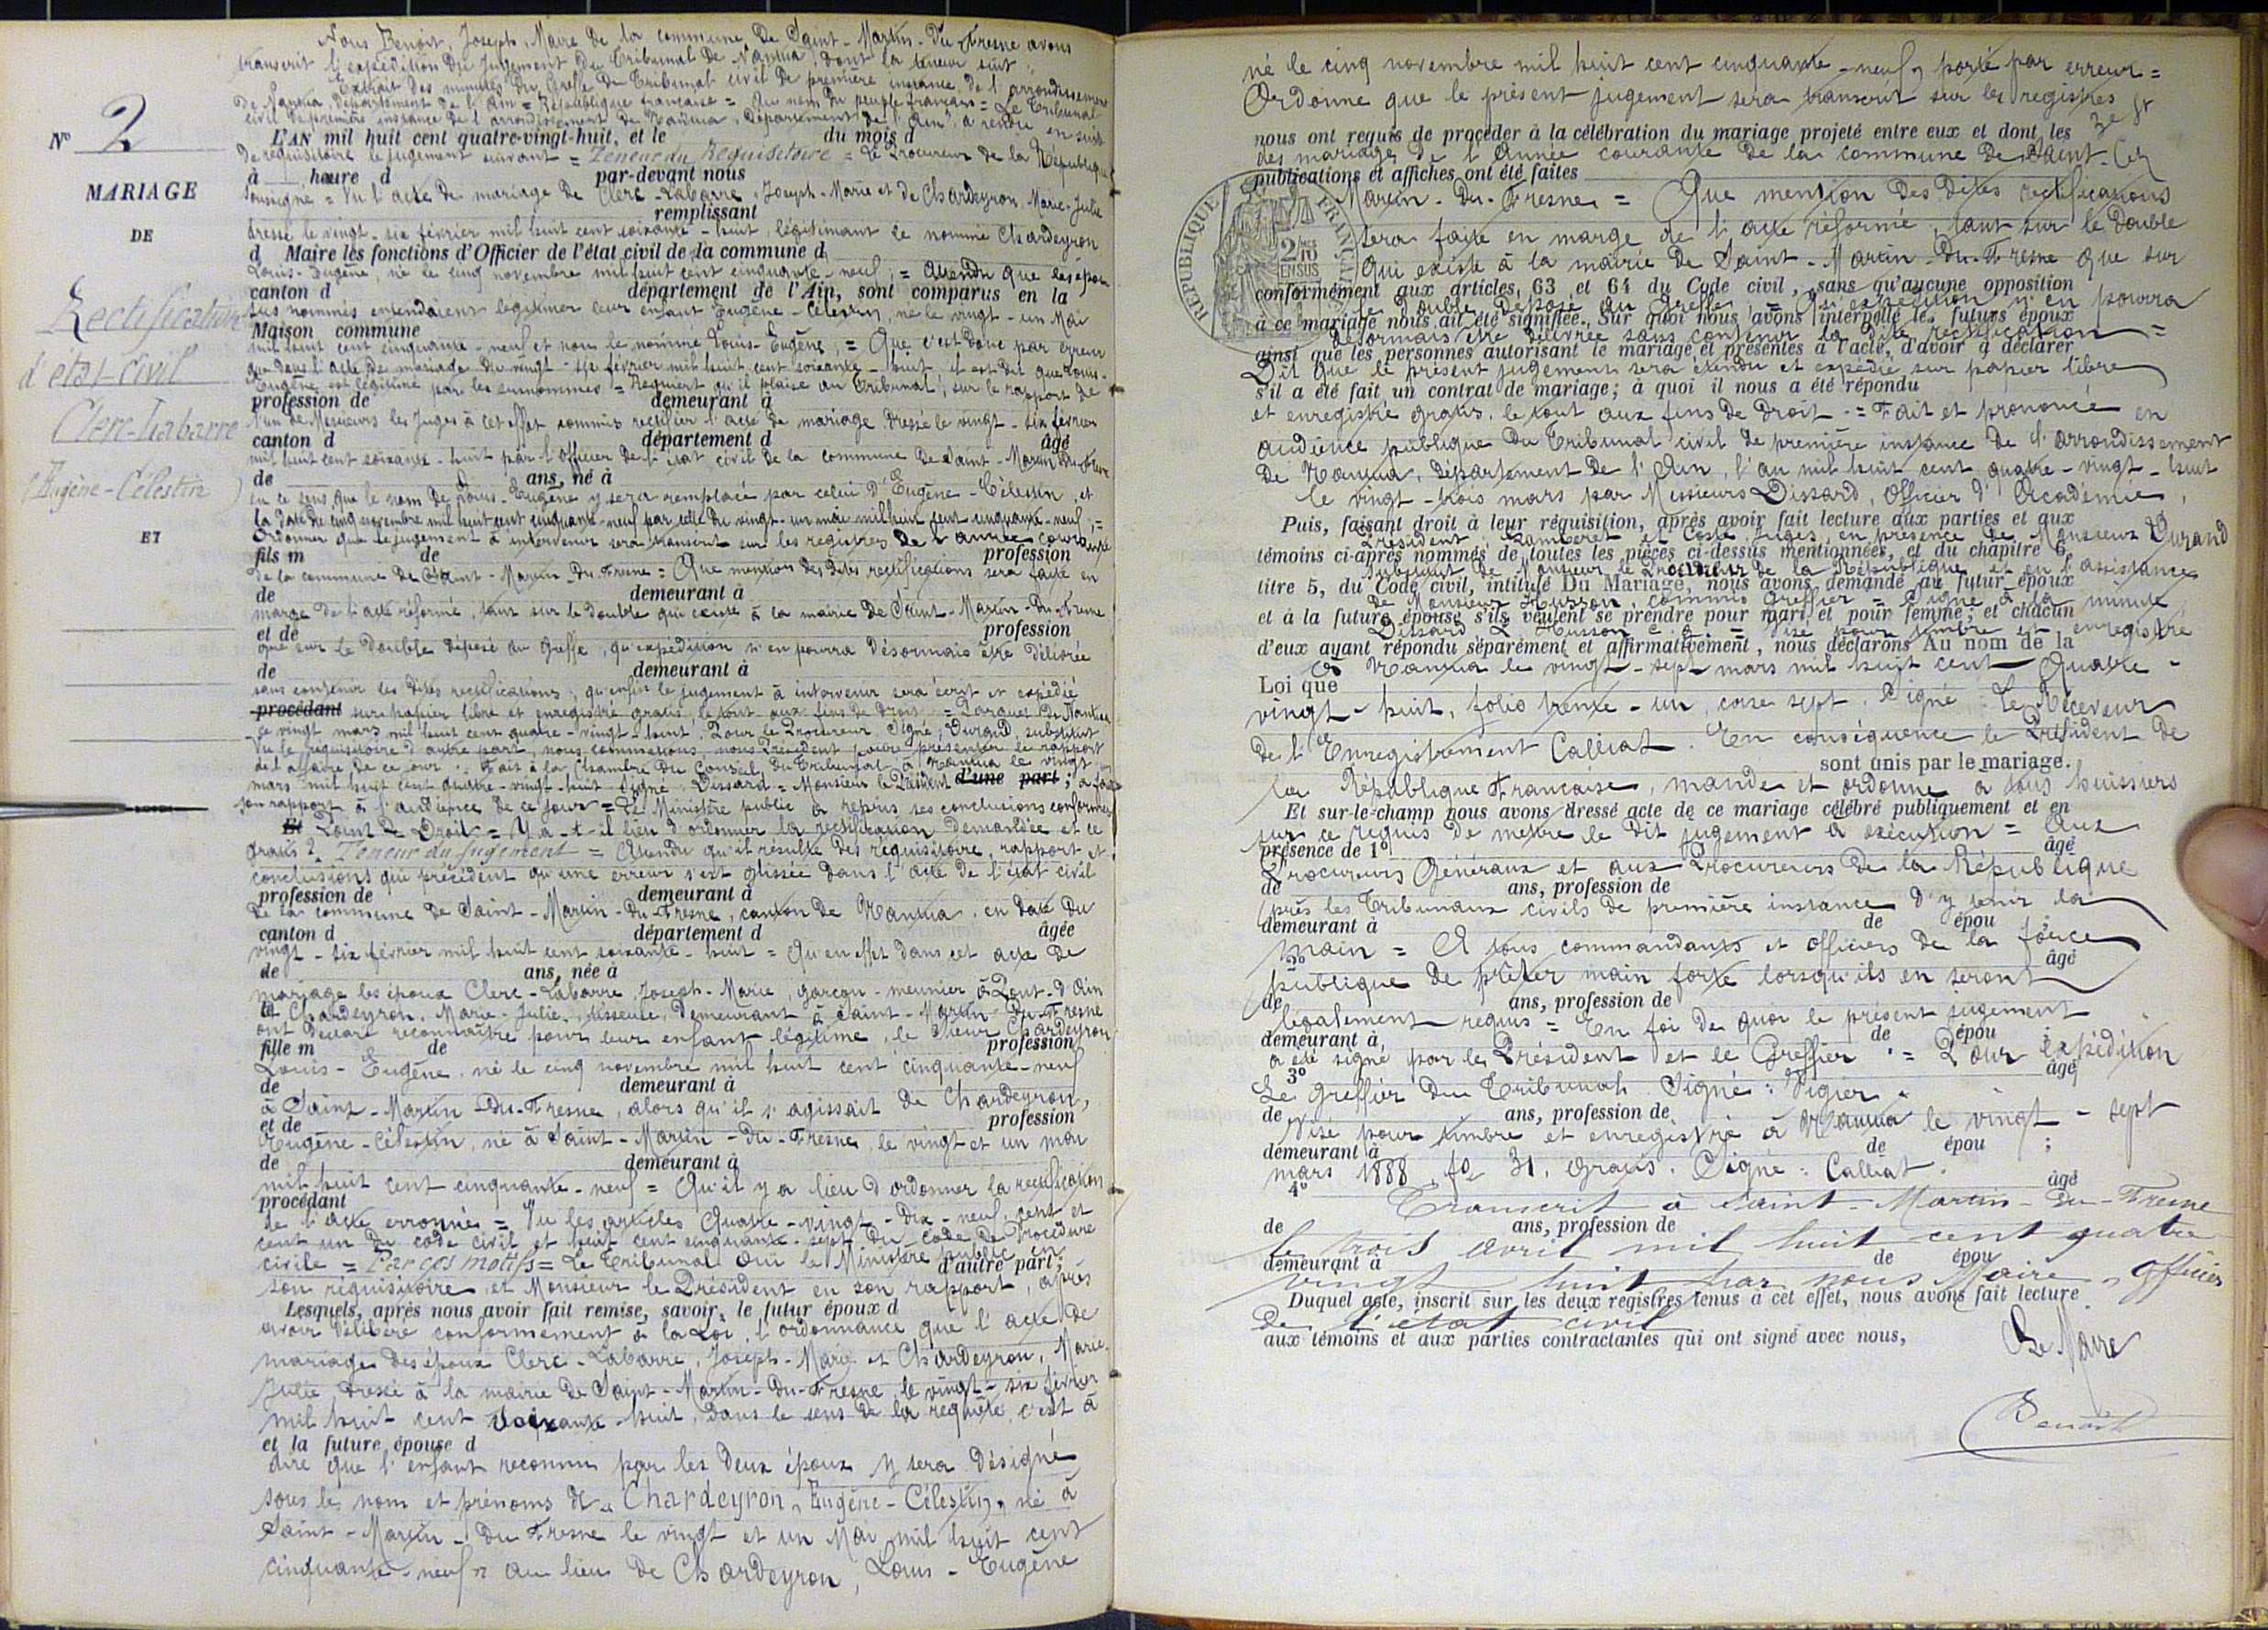 Nous Benoit, Joseph, Maire de la commune De Saint-Martin-Du Fresne avons
transcrit l'expédition Du Jugement Du Tribunal De Nantua, Dont la teneur suit :
Extrait Des minutes Du Greffe Du Tribunal civil De première instance De l'arrondissement
De Nantua, Département De l'Ain = République française = Au nom Du peuple français = Le Tribunal
civil De première instance De l'arrondissement De Nantua, Département De l'Ain, a rendu en suite
N° 2
L'AN mil huit cent quatre-vingt-huit, et le du mois d
De réquisitoire le jugement suivant = Teneur du Réquisitoire = Le Procureur De la République
à heure d par-devant nous
MARIAGE
Soussigné = Vu l'acte De mariage De Clerc-Labarre, Joseph-Marie et De Chardeyron, Marie-Julie
remplissant
DE
dressé le vingt-six février mil huit cent soixante-huit, légitimant le nommé Chardeyron
d Maire les fonctions d'Officier de l'état civil de la commune d
Louis-Eugène, né le cinq novembre mil huit cent cinquante-neuf, = Attendu que les époux
canton d département de l'Ain, sont comparus en la
sus nommés entendaient légitimer leur enfant Eugène-Célestin, né le vingt-un Mai
Rectification
Maison commune
mil huit cent cinquante-neuf et non le nommé Louis-Eugène, = Que c'est donc par erreur
que dans l'acte De mariage Du vingt-six février mil huit cent soixante-huit, il est dit que Louis-
d'état-civil
Eugène est légitimé par les susnommés = Requiert qu'il plaise au Tribunal, sur le rapport De
profession de demeurant à
l'un De Messieurs les Juges à cet effet commis rectifier l'acte De mariage Dressé le vingt-six février
Clerc-Labarre
canton d département d âgé
mil huit cent soixante-huit par l'Officier De l'état civil de la commune De Saint-Martin Du-Fresne
de ans, né à
(Eugène-Célestin)
en ce sens que le nom De Louis-Eugène y sera remplacé par celui d'Eugène-Célestin, et
la date Du cinq novembre mil huit cent cinquante-neuf par celle Du vingt-un mai mil huit cent cinquante-neuf, =
ET
Ordonner que le jugement à intervenir sera transcrit sur les registres De l'année courante
fils m de profession
De la commune De Saint-Martin Du Fresne = Que mention des dites rectifications sera faite en
de demeurant à
marge De l'acte réformé, tant sur le double qui existe à la mairie De Saint-Martin-Du-Fresne
et de profession
que sur le Double déposé au Greffe, qu'expédition n'en pourra Désormais être Délivrée
de demeurant à
sans contenir les Dites rectifications, qu'enfin le jugement à intervenir sera écrit et expédié
procédant sur papier libre et enregistré gratis, le tout aux fins De Droit = Parquet De Nantua
ce vingt mars mil huit cent quatre-vingt-huit. Pour le Procureur Signé, Durand, substitut
Vu le réquisitoire d'autre part, nous commettons nous Président pour présenter le rapport
de l'affaire De ce jour = Fait à la Chambre Du Conseil Du Tribunal à Nantua le vingt
mars mil huit cent quatre-vingt-huit Signé Dissard = Monsieur le Président d'une part ; a fait
son rapport à l'audience De ce jour = Le Ministère public a repris ses conclusions conformes
Et Point De Droit = Y a-t-il lieu d'ordonner la rectification Demandée et ce
gratis ? Teneur du Jugement = Attendu qu'il résulte Des réquisitoire, rapport et
conclusions qui précèdent qu'une erreur s'est glissée Dans l'acte De l'état civil
profession de demeurant à
De la commune De Saint-Martin-Du-Fresne, canton De Nantua, en Date Du
canton d département d âgée
vingt-six février mil huit cent soixante-huit = Qu'en effet dans cet acte De
de ans, née à
mariage les époux Clerc-Labarre, Joseph-Marie, garçon-meunier à Pont-d'Ain
Et Chardeyron, Marie-Julie, tisseuse, Demeurant à Saint-Martin-Du-Fresne
ont Déclaré reconnaître pour leur enfant légitime, le sieur Chardeyron
fille m de profession
Louis-Eugène, né le cinq novembre mil huit cent cinquante-neuf
de demeurant à
à Saint-Martin-Du-Fresne, alors qu'il s'agissait De Chardeyron,
et de profession
Eugène-Célestin, né à Saint-Martin-Du-Fresne, le vingt et un mai
de demeurant à
mil huit cent cinquante-neuf = Qu'il y a lieu D'ordonner la rectification
procédant
De l'acte erronné = Vu les articles Quatre-vingt-Dix-neuf, cent et
cent un Du code civil et huit cent cinquante-sept Du code De Procédure
civile = Par ces motifs = Le Tribunal Ouï le Ministère public en
d'autre part ;
son réquisitoire et Monsieur le Président en son rapport, après
Lesquels, après nous avoir fait remise, savoir, le futur époux d
avoir Délibéré conformément à la Loi, l'ordonnance que l'acte De
mariage des époux Clerc-Labarre, Joseph-Marie et Chardeyron, Marie-
Julie Dressé à la mairie De Saint-Martin-Du-Fresne, le vingt-six février
mil huit cent soixante-huit, Dans le sens De la requête, c'est à
et la future épouse d
dire que l'enfant reconnu par les Deux époux y sera Désigné
sous les nom et prénoms De « Chardeyron, Eugène-Célestin, né à
Saint-Martin-Du Fresne le vingt et un Mai mil huit cent
cinquante-neuf » au lieu De Chardeyron, Louis-Eugène
né le cinq novembre mil huit cent cinquante-neuf, porté par erreur =
Ordonne que le présent jugement sera transcrit sur les registres
nous ont requis de procéder à la célébration du mariage projeté entre eux et dont les
des mariages De l'Année courante De la commune De Saint-
publications et affiches ont été faites
Martin-Du-Fresne = Que mention Des Dites rectifications
sera faite en marge De l'acte réformé, tant sur le Double
RÉPUBLIQUE FRANÇAISE
2/10 EN SUS
Qui existe à la mairie De Saint-Martin-Du-Fresne que sur
conformément aux articles 63 et 64 du Code civil, sans qu'aucune opposition
le Double Déposé au Greffe, = Qu'expédition n'en pourra
à ce mariage nous ait été signifiée. Sur quoi nous avons interpellé les futurs époux
désormais être Délivrée sans contenir la Dite rectification =
ainsi que les personnes autorisant le mariage et présentes à l'acte, d'avoir à déclarer
Dit que le présent jugement sera étendu et expédié sur papier libre
s'il a été fait un contrat de mariage ; à quoi il nous a été répondu
et enregistré gratis, le tout aux fins De Droit = Fait et prononcé en
audience publique Du Tribunal civil De première instance De l'arrondissement
De Nantua, Département De l'Ain, l'an mil huit cent quatre-vingt-huit
le vingt-trois mars par Messieurs Dissard, Officier d'Académie,
Puis, faisant droit à leur réquisition, après avoir fait lecture aux parties et aux
Président, Lamberet et Coste Juges, en présence De Monsieur Durand
témoins ci-après nommés de toutes les pièces ci-dessus mentionnées, et du chapitre 6,
Substitut De Monsieur le Procureur De la République et en l'assistance
titre 5, du Code civil, intitulé Du Mariage, nous avons demandé au futur époux
De Monsieur Husson, commis Greffier = Signé à la minute
et à la future épouse s'ils veulent se prendre pour mari et pour femme ; et chacun
Dissard & Husson c. g. = Visé pour timbre et enregistré
d'eux ayant répondu séparément et affirmativement, nous déclarons Au nom de la
à Nantua le vingt-sept mars mil huit cent Quatre-
Loi que
vingt-huit, folio trente-un, case sept. Signé : Le Receveur
de l'Enregistrement Calliat. En conséquence le Président De
sont unis par le mariage.
la République Française, mande et ordonne à tous huissiers
Et sur-le-champ nous avons dressé acte de ce mariage célébré publiquement et en
sur ce requis De mettre le Dit jugement à exécution = Aux
présence de 1° âgé
Procureurs Généraux et aux Procureurs De la République
de ans, profession de
près les Tribunaux civils De première instance D'y tenir la
demeurant à de épou ;
main = A tous commandants et officiers De la force
2° âgé
publique De prêter main forte lorsqu'ils en seront
de ans, profession de
légalement requis = En foi De quoi le présent jugement
demeurant à de épou ;
a été signé par le Président et le Greffier = Pour Expédition
3° âgé
Le Greffier Du Tribunal Signé : Vigier.
de ans, profession de
Visé pour timbre et enregistré à Nantua le vingt-sept
demeurant à de épou ;
mars 1888 f° 31. Gratis. Signé : Calliat.
4° âgé
Transcrit à Saint-Martin-Du-Fresne
de ans, profession de
le trois avril mil huit cent quatre
demeurant à de épou
vingt huit par nous Maire, Officier
Duquel acte, inscrit sur les deux registres tenus à cet effet, nous avons fait lecture
De l'état civil
aux témoins et aux parties contractantes qui ont signé avec nous,
Le Maire
Benoit